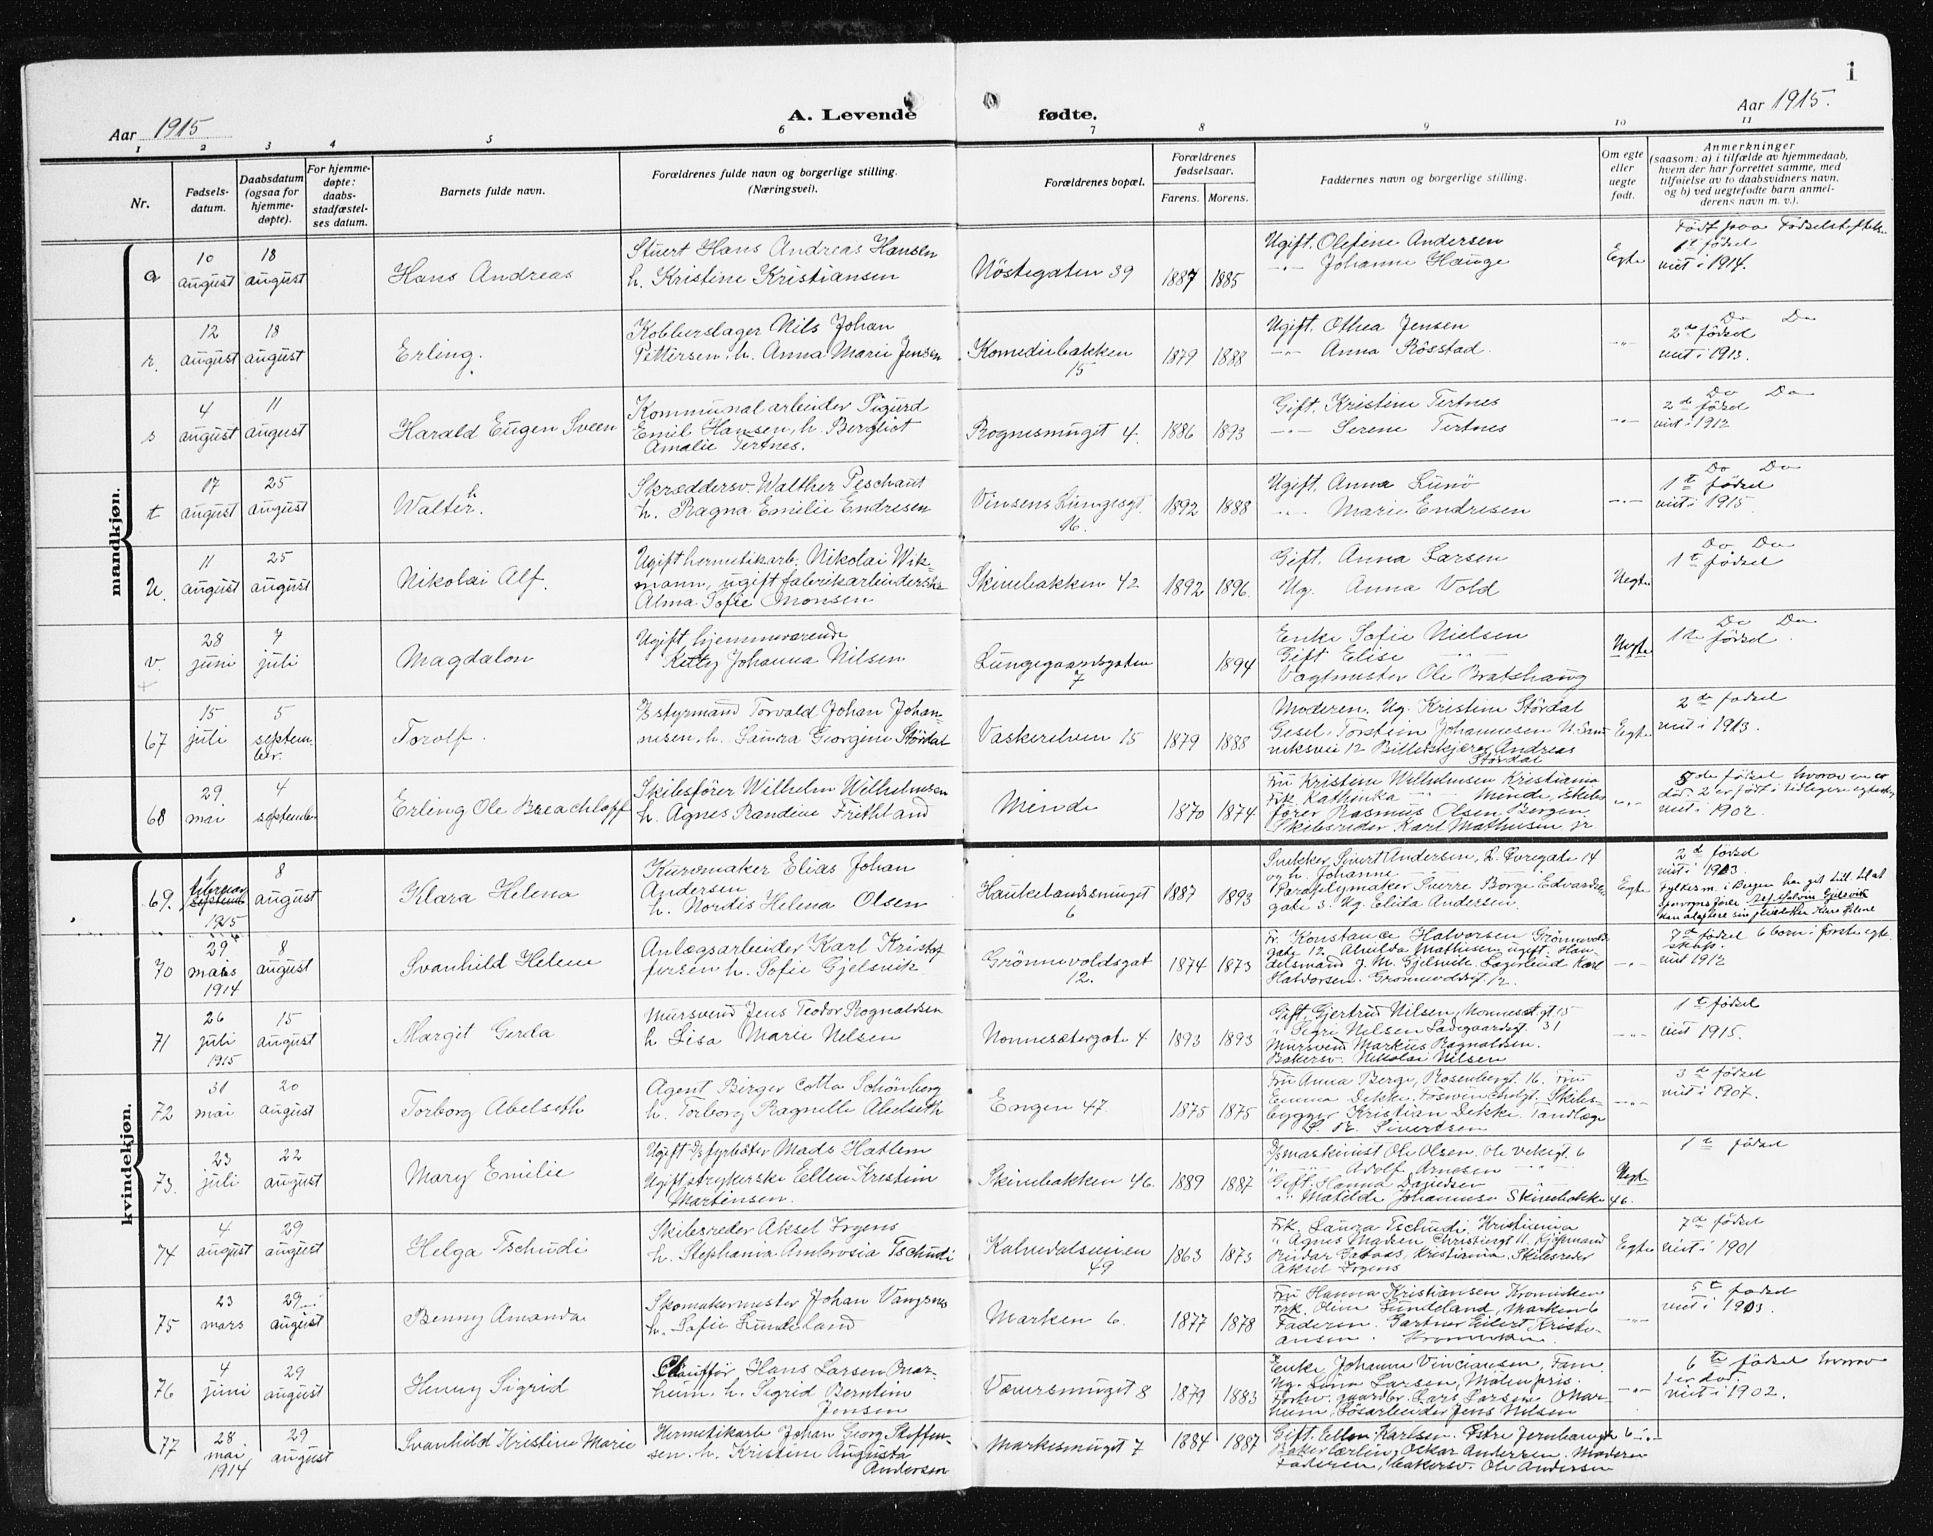 1
Aar 1915
A. Levende fødte.
Aar 1915.
1 2 3 4 5 6 7 8 9 10 11
Nr.
Fødsels-
datum.
Daabsdatum
(ogsaa for
hjemme-
døpte).
For hjemme-
døpte:
daabs-
stadfæstel-
ses datum.
Barnets fulde navn.
Forældrenes fulde navn og borgerlige stilling.
(Næringsvei).
Forældrenes bopæl.
Forældrenes
fødselsaar.
Farens. Morens.
Faddernes navn og borgerlige stilling.
Om egte
eller
uegte
født.
Anmerkninger
(saasom: a) i tilfælde av hjemmedaab,
hvem der har forrettet samme, med
tilføielse av to daabsvidners navn,
og b) ved uegtefødte barn anmel-
derens navn m. v.).
mandkjøn.
q
10
august
18
august
Hans Andreas
Stuert Hans Andreas Hansen
h. Kristine Kristiansen
Nöstegaten 39
1887 1885
Ugift. Olefine Andersen
-"- Johanne Hauge
Egte
Født paa Fødselsstiftels.
1ste födsel
viet i 1914.
r.
12
august
18
august
Erling.
Kobberslager Nils Johan
Pettersen, h. Anna Marie Jensen
Komediebakken
15
1879 1888
Ugift. Othea Jensen
-"- Anna Rösstad.
-"-
Do Do
2de födsel
viet i 1913.
s
4
august
11
august
Harald Eugen Sveen
Kommunalarbeider Sigurd
Emil Hansen, h. Bergliot
Amalie Tertnes.
Rognesmuget 4.
1886 1893
Gift. Kristine Tertnes
-"- Serene Tertnes
-"-
Do Do
2de födsel
viet i 1912
t
17
august
25
august
Walther.
Skræddersv. Walther Peschaut
h. Ragna Emilie Endresen
Vinsens Lungesgt.
16.
1892 1888
Ugift. Anna Lunö
-"- Marie Endresen
-"-
Do Do
1te födsel
viet i 1915.
u.
11
august
25
august
Nikolai Alf.
Ugift hermetikarb. Nikolai Wik-
mann, ugift fabrikarbeiderske
Alma Sofie Monsen
Skivebakken 42
1892 1896
Gift. Anna Larsen
Ug. Anna Vold
Uegte
Do Do
1te födsel
v.
28
juni
7
juli
Magdalon
Ugift hjemmeværende
Ketty Johanna Nilsen
Lungegaardsgaten
7
1894
Enke Sofie Nielsen
Gift Elise
Vagtmester Ole Bratshaug
Uegte
Do Do
1ste födsel.
67
15
juli
5
septem-
ber.
Torolf.
styrmand Torvald Johan Johan-
nesen, h. Laura Georgine Stördal
Vaskerelven 15
1879 1888
Moderen. Ug. Kristine Stördal
Gesel. Torstein Johannesen
niksvei 12 Billedskjærer Andreas
Stördal
Egte
2de födsel
viet i 1913.
68
29
mai
4
september
Erling Ole
Skibsförer Wilhelm Wilhelmsen
h. Agnes Randine Frithland
Minde
1870 1874
Fru Kristine Wilhelmsen Kristiania
Frk. Kathinka -"- Minde, Skibs-
förer Rasmus Olsen Bergen
Skibsreder Karl Mathiesen jr
-"-
5de födsel hvorav en er
död. 2 er født i tidligere egteskap
viet i 1902.
kvindekjøn.
69.
1
1915
8
august
Klara Helena
Kurvmaker Elias Johan
Andersen
h. Nordis Helena Olsen
Haukelandsmuget
6
1887 1893
Snekker Sivert Andersen, L. Övregate 14
og h. Johanne -"-
Paraplymaker Sverre Borge Edvardsens
gate 3. Ug. Elida Andersen.
Egte
2de födsel
viet i 1913
Fylkesm. i Bergen har
70
29
mars
1914
8
august
Svanhild Helene
Anlægsarbeider Karl Kristof-
fersen h. Sofie Gjelsvik
Grönnevoldsgat
12.
1874 1873
Fr. Konstance Halvorsen Grönnevolds
gate 12 Alvilda Mathisen ugift. Han-
delsmand J. M. Gjelsvik. Lagerbud Karl
Halvorsen. Grönnevoldsgt. 12.
-"-
7de födsel 6 born i forste egte-
skap.
viet 1912
71
26
juli
1915
15
august
Margit Gerda
Mursvend Jens Teodor Rognaldsen
h Lisa Marie Nilsen
Nonnesætergate 4
1893 1893
Gift. Gjertrud Nilsen, Nonnesetgt 15
" Sigri Nilsen Ladegaardsgt. 31
Mursvend Markus Ragnaldsen.
Bakersv. Nikolai Nilsen
-"-
1te födsel
viet 1915.
72
31
mai
20
august
Torborg Abelseth
Agent Birger Cotta Schönberg
h. Torborg Ragnelle Abelseth
Engen 47.
1875 1875
Fru Anna Berge, Rosenbergt. 16. Fru
Emma Dekke Fosswinckelsgt. Skibs-
bygger Kristian Dekke Tandlæge
Sivertsen
-"-
3de födsel
viet i 1907.
73.
23
juli
22
august
Mary Emilie
Ugift D/s fyrböter Mads Hatlem
Ugift strykerske Ellen Kristine
Martinsen.
Skivebakken 46.
1889 1887
D/s maskinist Ole Olsen. Ole Vekesgt. 6
" -"- Adolf Arnesen -"-
Gift. Hanna Danielsen
" Matilde Johannesen Skivebakken 46.
Uegte
1te födsel
74
4
august
29
august
Helga Tschudi
Skibsreder Aksel Irgens
h. Stephania Ambrosia Tschudi
Kalvedalsveien
49
1863 1873
Frk. Laura Tschudi, Kristiania
" Agnes Madsen Christiesgt 11. Kjöpmand
Reidar Kristiania. Skibsreder
Aksel Irgens
Egte
7de födsel
viet i 1901
75
23
mars
29
august
Benny Amanda
Skomakermester Johan Vangsnes
h. Sofie Lundeland
Marken 6.
1877 1878
Fru Hanna Kristiansen Kroneviken
Frk. Oline Lundeland, Marken 6
Faderen. Gartner Eilert Kristi-
ansen. Kroneviken.
-"-
5te födsel
viet i 1903.
76
4
juni
29
august
Henny Sigrid
Chauffør Hans Larsen Mar-
heim, h. Sigrid Berntine
Jensen
Væversmuget 8
1879 1883
Enke Johanne Vinciansen, Fam.
Ug. Lina Larsen, Målenpris.
Forhv. gaardbr. Lars Larsen Mar-
heim, Lösarbeider Jens Nilsen
-"-
6te födsel hvorav
1 er död.
viet i 1902.
77
28
mai
1914
29
august
Svanhild Kristine Marie
Hermetikarb. Johan Georg Steffen-
sen. h. Kristine Augusta
Andersen
Markesmuget 7
1884 1887
Gift. Ellen Karlsen. Övre Jernbanegt 6
Bakerlærling Oskar Andersen. Moderen
Faderen, bakersv. Ole Andersen
-"-